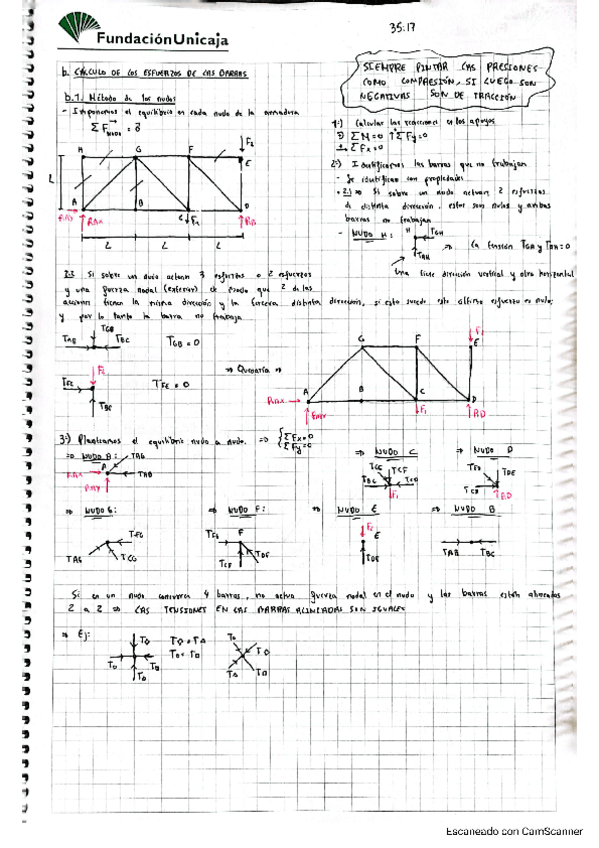 FundaciónUnicaja
35:17
b. CÁLCULO DE LOS ESFUERZOS DE LAS BARRAS
SIEMPRE PINTAR LAS PRESIONES
COMO COMPRESIÓN, SI LUEGO SON
NEGATIVAS SON DE TRACCIÓN
b.1. Método de los nudos
- Imponemos el equilibrio en cada nudo de la armadura
Σ F NUDO = 0
1º) Calcular las reacciones en los apoyos
ΣM=0 ↑ΣFy=0
ΣFx=0
2º) Identificamos las barras que no trabajan
- Se identifican con propiedades
2.1) ⇒ Si sobre un nudo actúan 2 esfuerzos
de distinta dirección, estos son nulos y ambas
barras no trabajan
- NUDO H: H TGH ⇒ la tensión TGH y TAH=0
TAH
Una tiene dirección vertical y otra horizontal
H G F F2
L E
A B C F1 D
RAX RAX RD
L L L
2.2 Si sobre un nudo actúan 3 esfuerzos o 2 esfuerzos
y una fuerza nodal (exterior) de modo que 2 de las
acciones tienen la misma dirección y la tercera distinta dirección, si esto sucede este último esfuerzo es nulo,
y por lo tanto la barra no trabaja
TGB
TAB TBC TGB = 0
⇒ Quedaría ⇒
TFE TFE = 0
G F F2 E
A B C D
RAX RAY F1 RD
3º) Planteamos el equilibrio nudo a nudo. ⇒ ΣFx=0
ΣFy=0
⇒ NUDO A: TAG
A
RAX TAB
RAY
⇒ NUDO C
TCG TCF
TBC TCD
F1
⇒ NUDO D
TFD TDE
TCD RD
⇒ NUDO G:
TFG
TAG TCG
⇒ NUDO F:
TFG F
TCF TDF
⇒ NUDO E
F2
E
TDE
⇒ NUDO B
TAB TBC
Si en un nudo convergen 4 barras, no actúa fuerza nodal en el nudo y las barras están alineadas
2 a 2 ⇒ LAS TENSIONES EN LAS BARRAS ALINEADAS SON IGUALES
⇒ Ej:
Escaneado con CamScanner